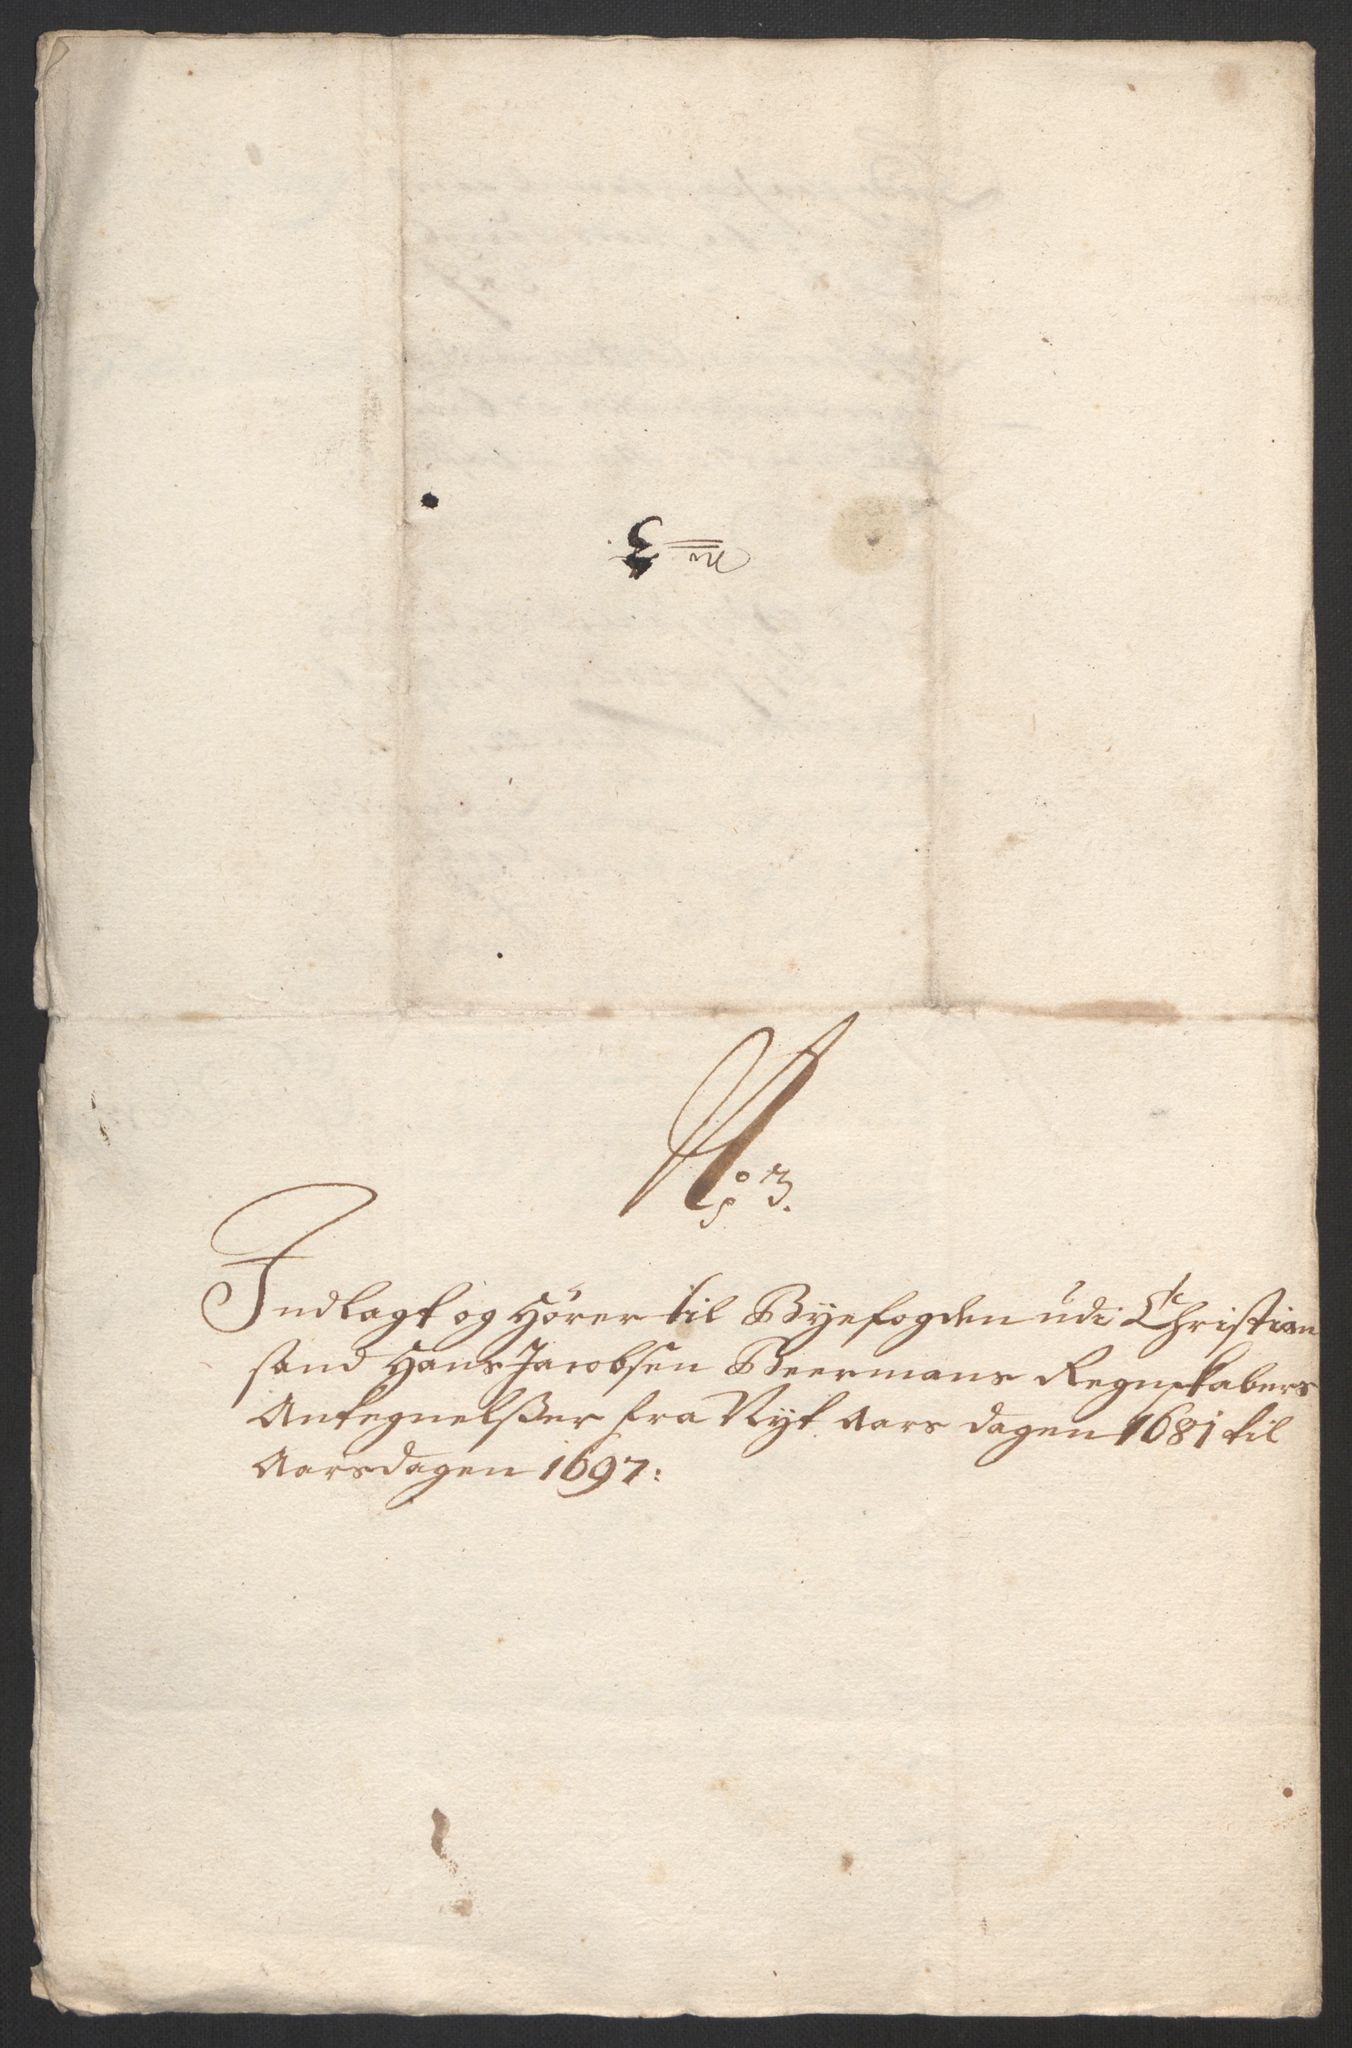 No 3
No 3.
Indlagt og Hörer til Byefogden udi Christian
sand Hans Jacobsen Beermans Regnskabers
Antegnelsser fra Nyt Aars dagen 1681 til
Aarsdagen 1697: